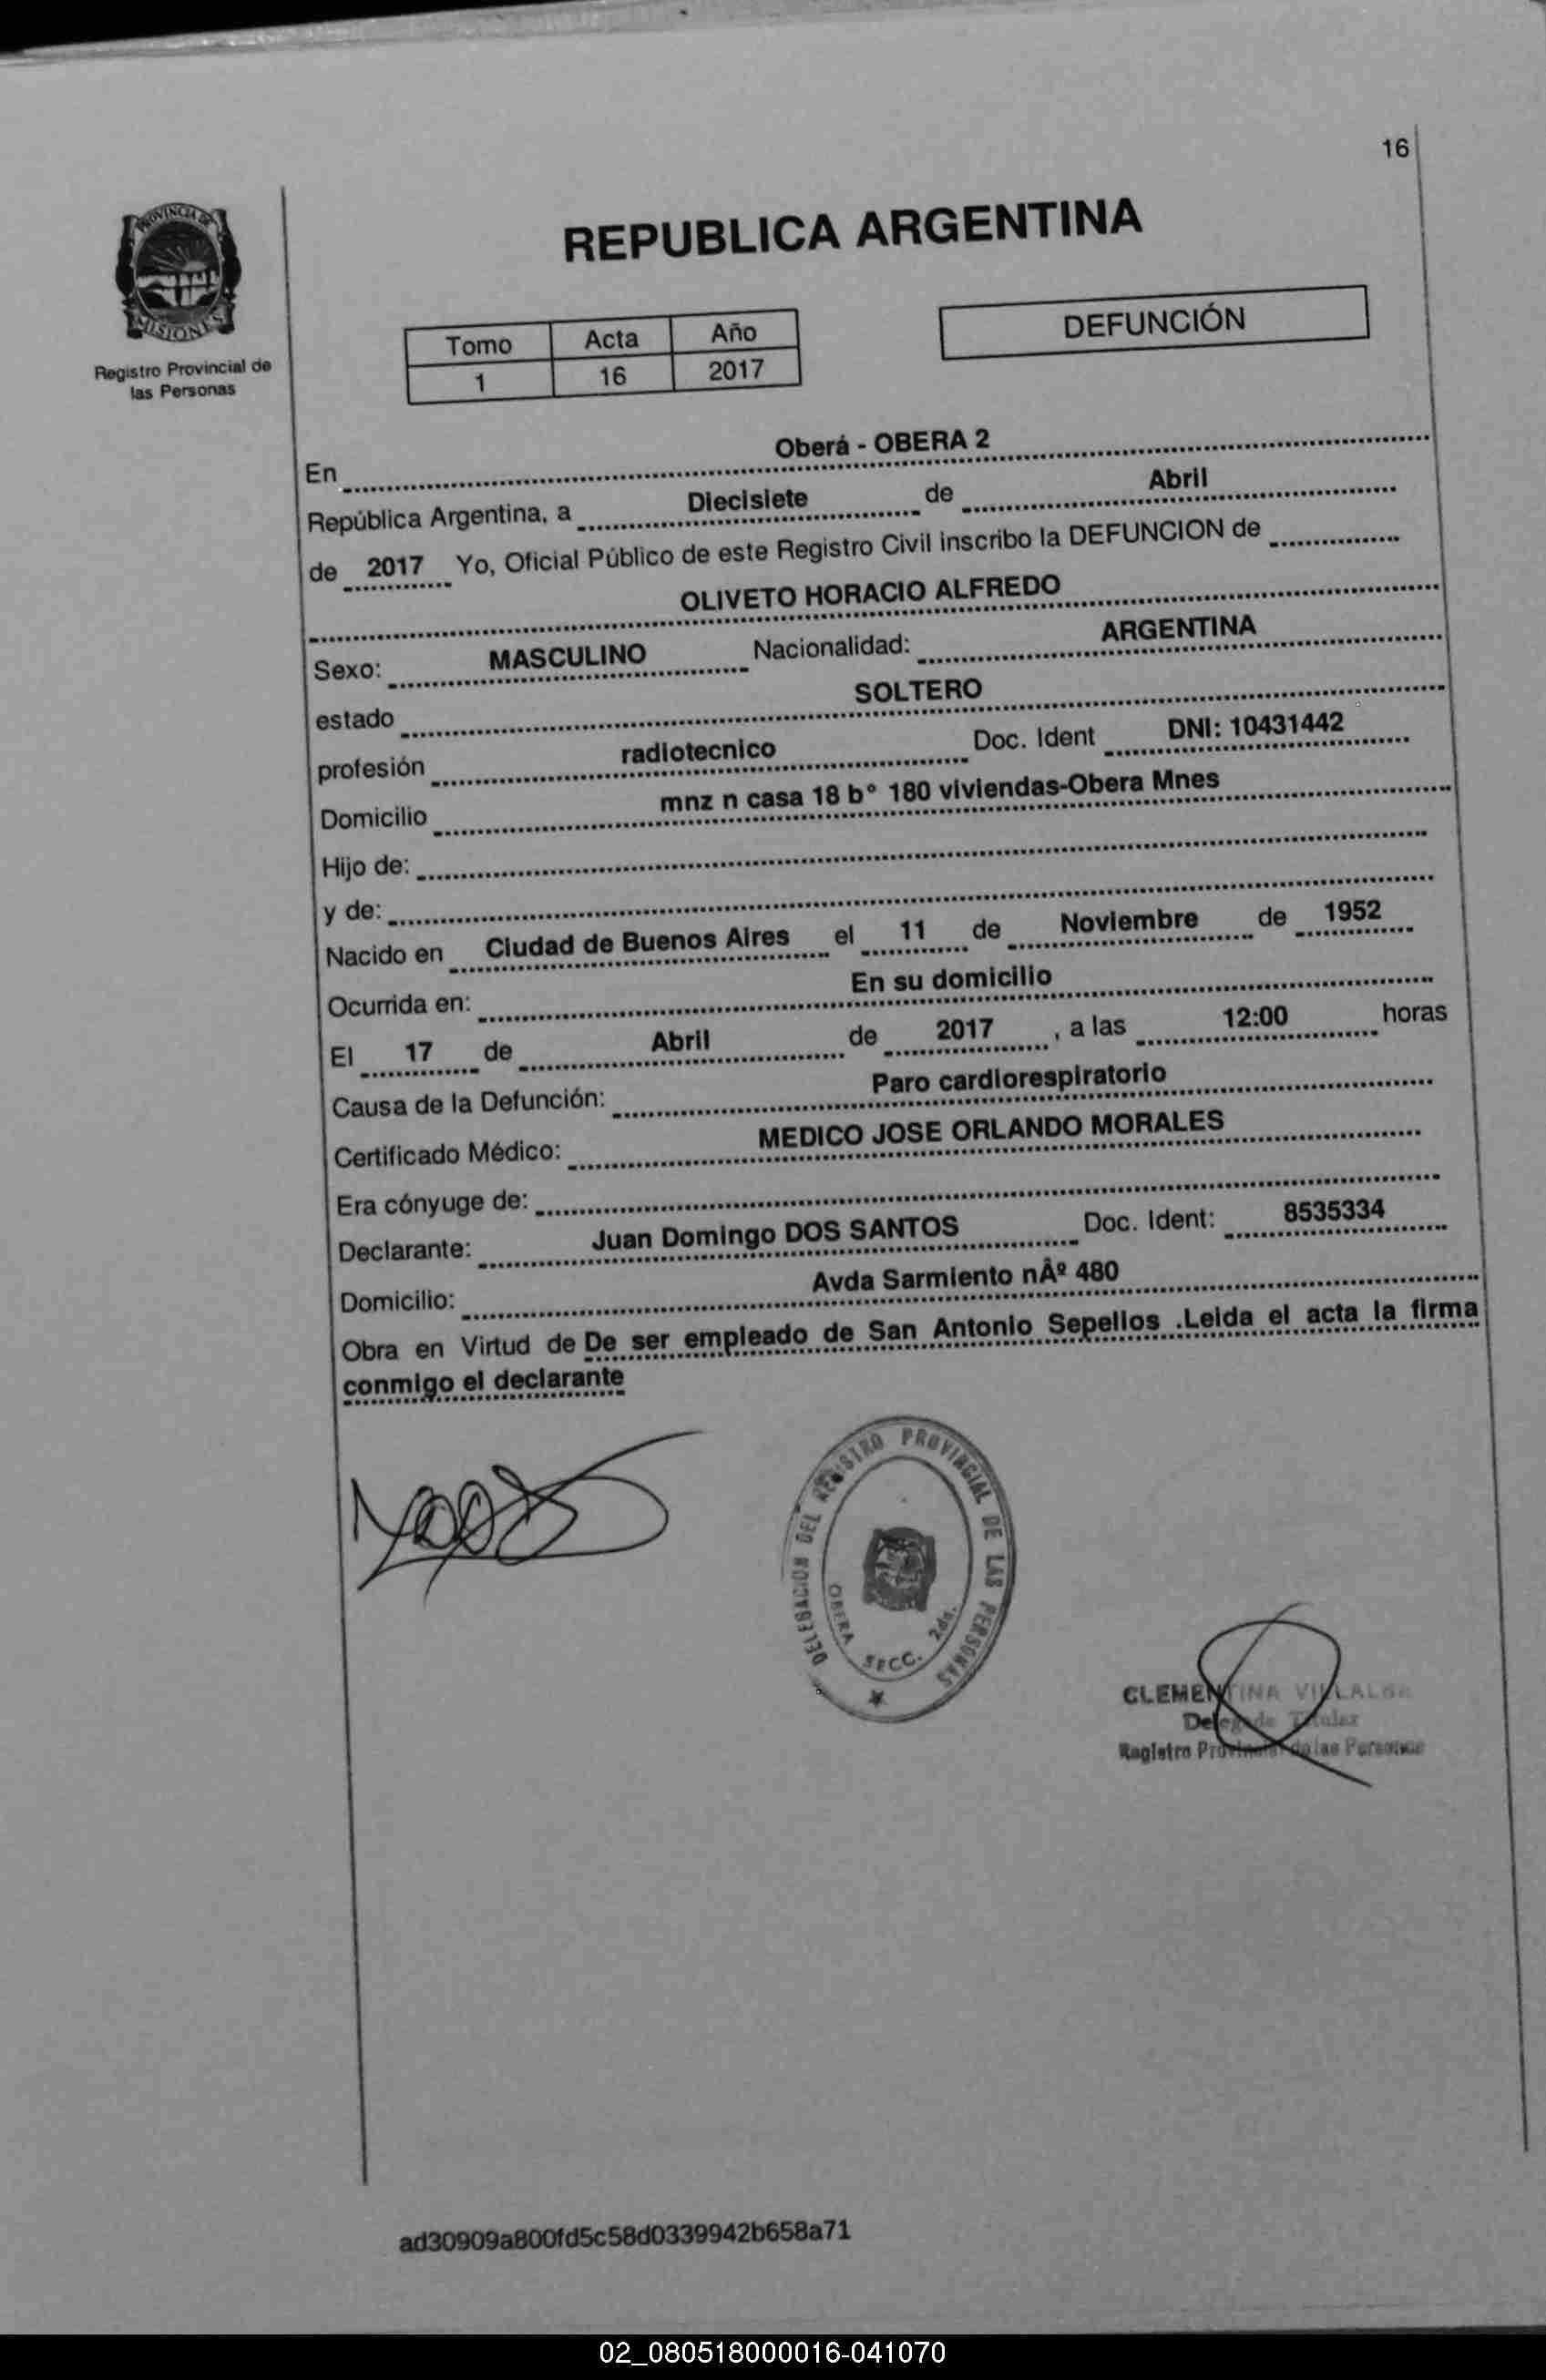 16
PROVINCIA DE
MISIONES
Registro Provincial de
las Personas
REPUBLICA ARGENTINA
Tomo Acta Año
1 16 2017
DEFUNCIÓN
En Oberá - OBERA 2
República Argentina, a Diecisiete de Abril
de 2017 Yo, Oficial Público de este Registro Civil inscribo la DEFUNCION de
OLIVETO HORACIO ALFREDO
Sexo: MASCULINO Nacionalidad: ARGENTINA
estado SOLTERO
profesión radiotecnico Doc. Ident DNI: 10431442
Domicilio mnz n casa 18 b° 180 viviendas-Obera Mnes
Hijo de:
y de:
Nacido en Ciudad de Buenos Aires el 11 de Noviembre de 1952
Ocurrida en: En su domicilio
El 17 de Abril de 2017 , a las 12:00 horas
Causa de la Defunción: Paro cardiorespiratorio
Certificado Médico: MEDICO JOSE ORLANDO MORALES
Era cónyuge de:
Declarante: Juan Domingo DOS SANTOS Doc. Ident: 8535334
Domicilio: Avda Sarmiento nÂº 480
Obra en Virtud de De ser empleado de San Antonio Sepelios .Leida el acta la firma
conmigo el declarante
DELEGACION DEL REGISTRO PROVINCIAL DE LAS PERSONAS
OBERA SECC. 2da.
CLEMENTINA VILLALBA
Delegada Titular
Registro Provincial de las Personas
ad30909a800fd5c58d0339942b658a71
02_080518000016-041070